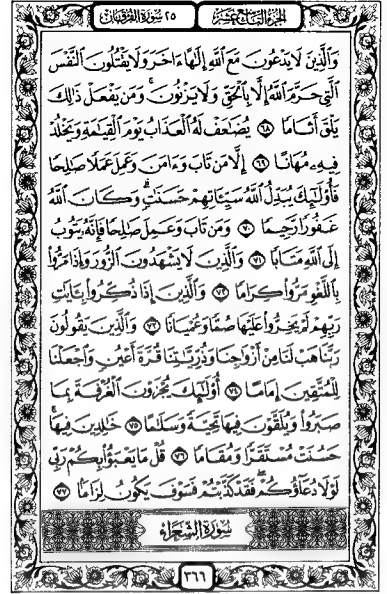 الجزء التاسع عشر ٢٥ سورة الفرقان
وَٱلَّذِينَ لَا يَدْعُونَ مَعَ ٱللَّهِ إِلَٰهًا ءَاخَرَ وَلَا يَقْتُلُونَ ٱلنَّفْسَ
ٱلَّتِى حَرَّمَ ٱللَّهُ إِلَّا بِٱلْحَقِّ وَلَا يَزْنُونَ ۚ وَمَن يَفْعَلْ ذَٰلِكَ
يَلْقَ أَثَامًا ٦٨ يُضَٰعَفْ لَهُ ٱلْعَذَابُ يَوْمَ ٱلْقِيَٰمَةِ وَيَخْلُدْ
فِيهِۦ مُهَانًا ٦٩ إِلَّا مَن تَابَ وَءَامَنَ وَعَمِلَ عَمَلًا صَٰلِحًا
فَأُو۟لَٰٓئِكَ يُبَدِّلُ ٱللَّهُ سَيِّـَٔاتِهِمْ حَسَنَٰتٍ ۗ وَكَانَ ٱللَّهُ
غَفُورًا رَّحِيمًا ٧٠ وَمَن تَابَ وَعَمِلَ صَٰلِحًا فَإِنَّهُۥ يَتُوبُ
إِلَى ٱللَّهِ مَتَابًا ٧١ وَٱلَّذِينَ لَا يَشْهَدُونَ ٱلزُّورَ وَإِذَا مَرُّوا۟
بِٱللَّغْوِ مَرُّوا۟ كِرَامًا ٧٢ وَٱلَّذِينَ إِذَا ذُكِّرُوا۟ بِـَٔايَٰتِ
رَبِّهِمْ لَمْ يَخِرُّوا۟ عَلَيْهَا صُمًّا وَعُمْيَانًا ٧٣ وَٱلَّذِينَ يَقُولُونَ
رَبَّنَا هَبْ لَنَا مِنْ أَزْوَٰجِنَا وَذُرِّيَّٰتِنَا قُرَّةَ أَعْيُنٍ وَٱجْعَلْنَا
لِلْمُتَّقِينَ إِمَامًا ٧٤ أُو۟لَٰٓئِكَ يُجْزَوْنَ ٱلْغُرْفَةَ بِمَا
صَبَرُوا۟ وَيُلَقَّوْنَ فِيهَا تَحِيَّةً وَسَلَٰمًا ٧٥ خَٰلِدِينَ فِيهَا ۚ
حَسُنَتْ مُسْتَقَرًّا وَمُقَامًا ٧٦ قُلْ مَا يَعْبَؤُا۟ بِكُمْ رَبِّى
لَوْلَا دُعَآؤُكُمْ ۖ فَقَدْ كَذَّبْتُمْ فَسَوْفَ يَكُونُ لِزَامًۢا ٧٧
سورة الشعراء
٣٦٦